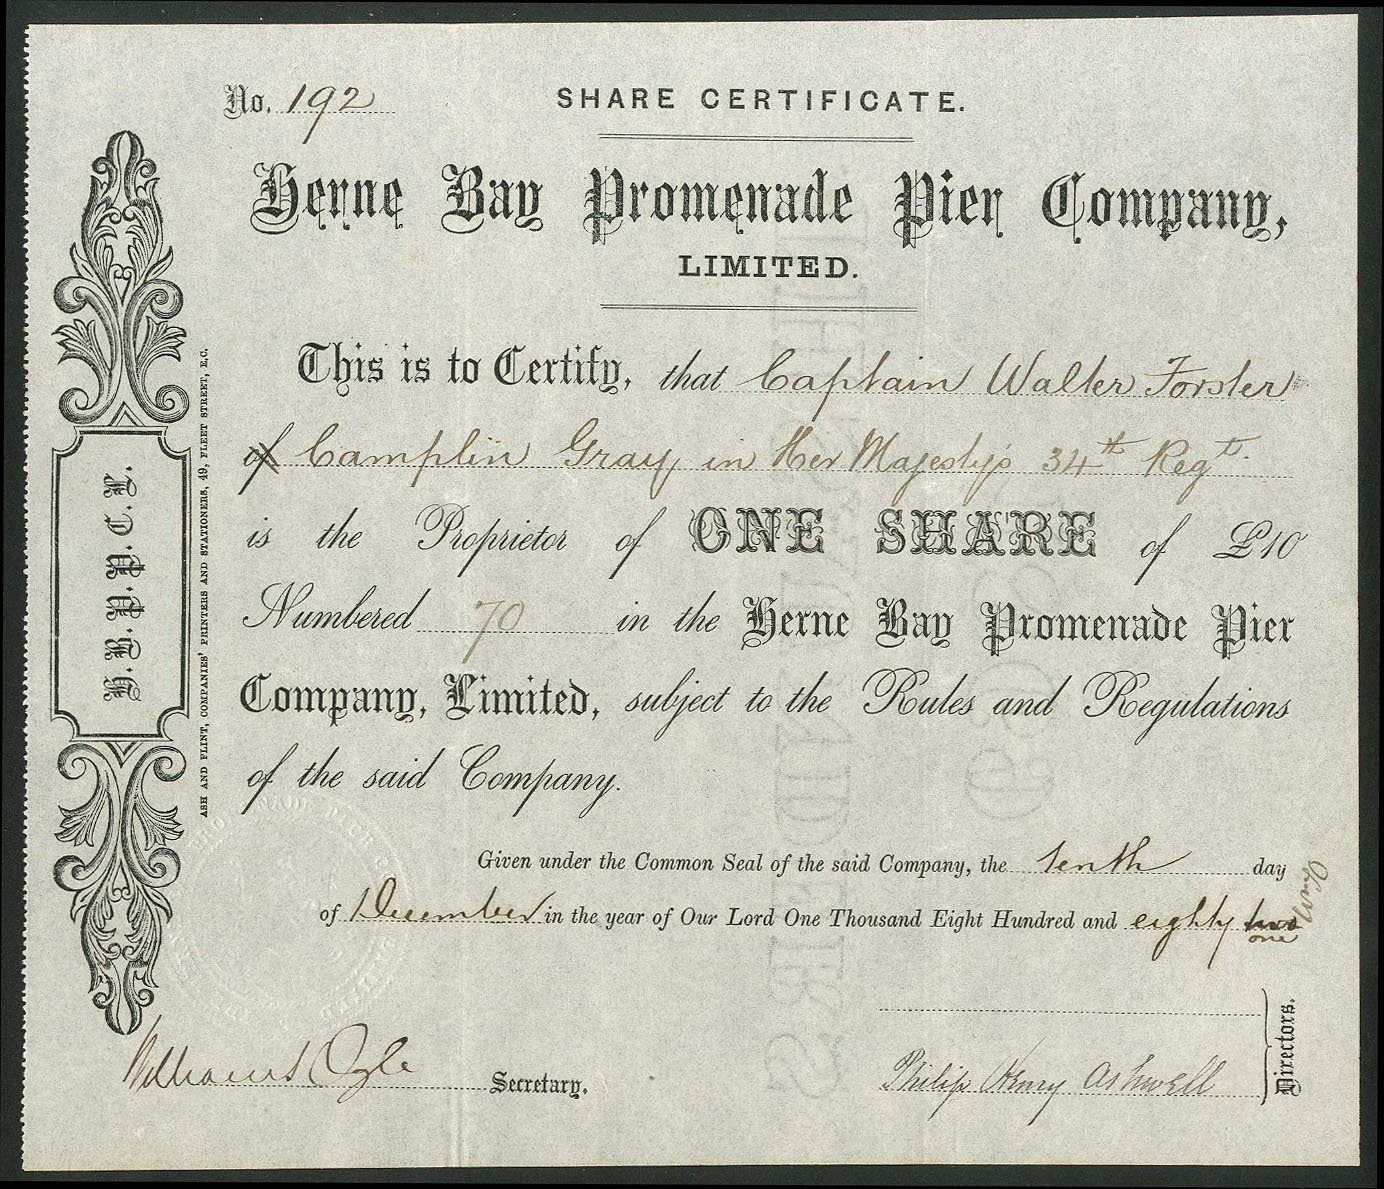 No. 192
SHARE CERTIFICATE.
Herne Bay Promenade Pier Company,
LIMITED.
This is to Certify, that Captain Walter Forster
of Camplin Gray in Her Majesty's 34th Regt.
is the Proprietor of ONE SHARE of £10
Numbered 70 in the Herne Bay Promenade Pier
Company, Limited, subject to the Rules and Regulations
of the said Company.
Given under the Common Seal of the said Company, the tenth day
of December in the year of Our Lord One Thousand Eight Hundred and eighty two
one
Secretary.
Philip Henry Ashwell
Directors.
H.B.P.P.C.L.
ASH AND FLINT, COMPANIES' PRINTERS AND STATIONERS, 49, FLEET STREET, E.C.